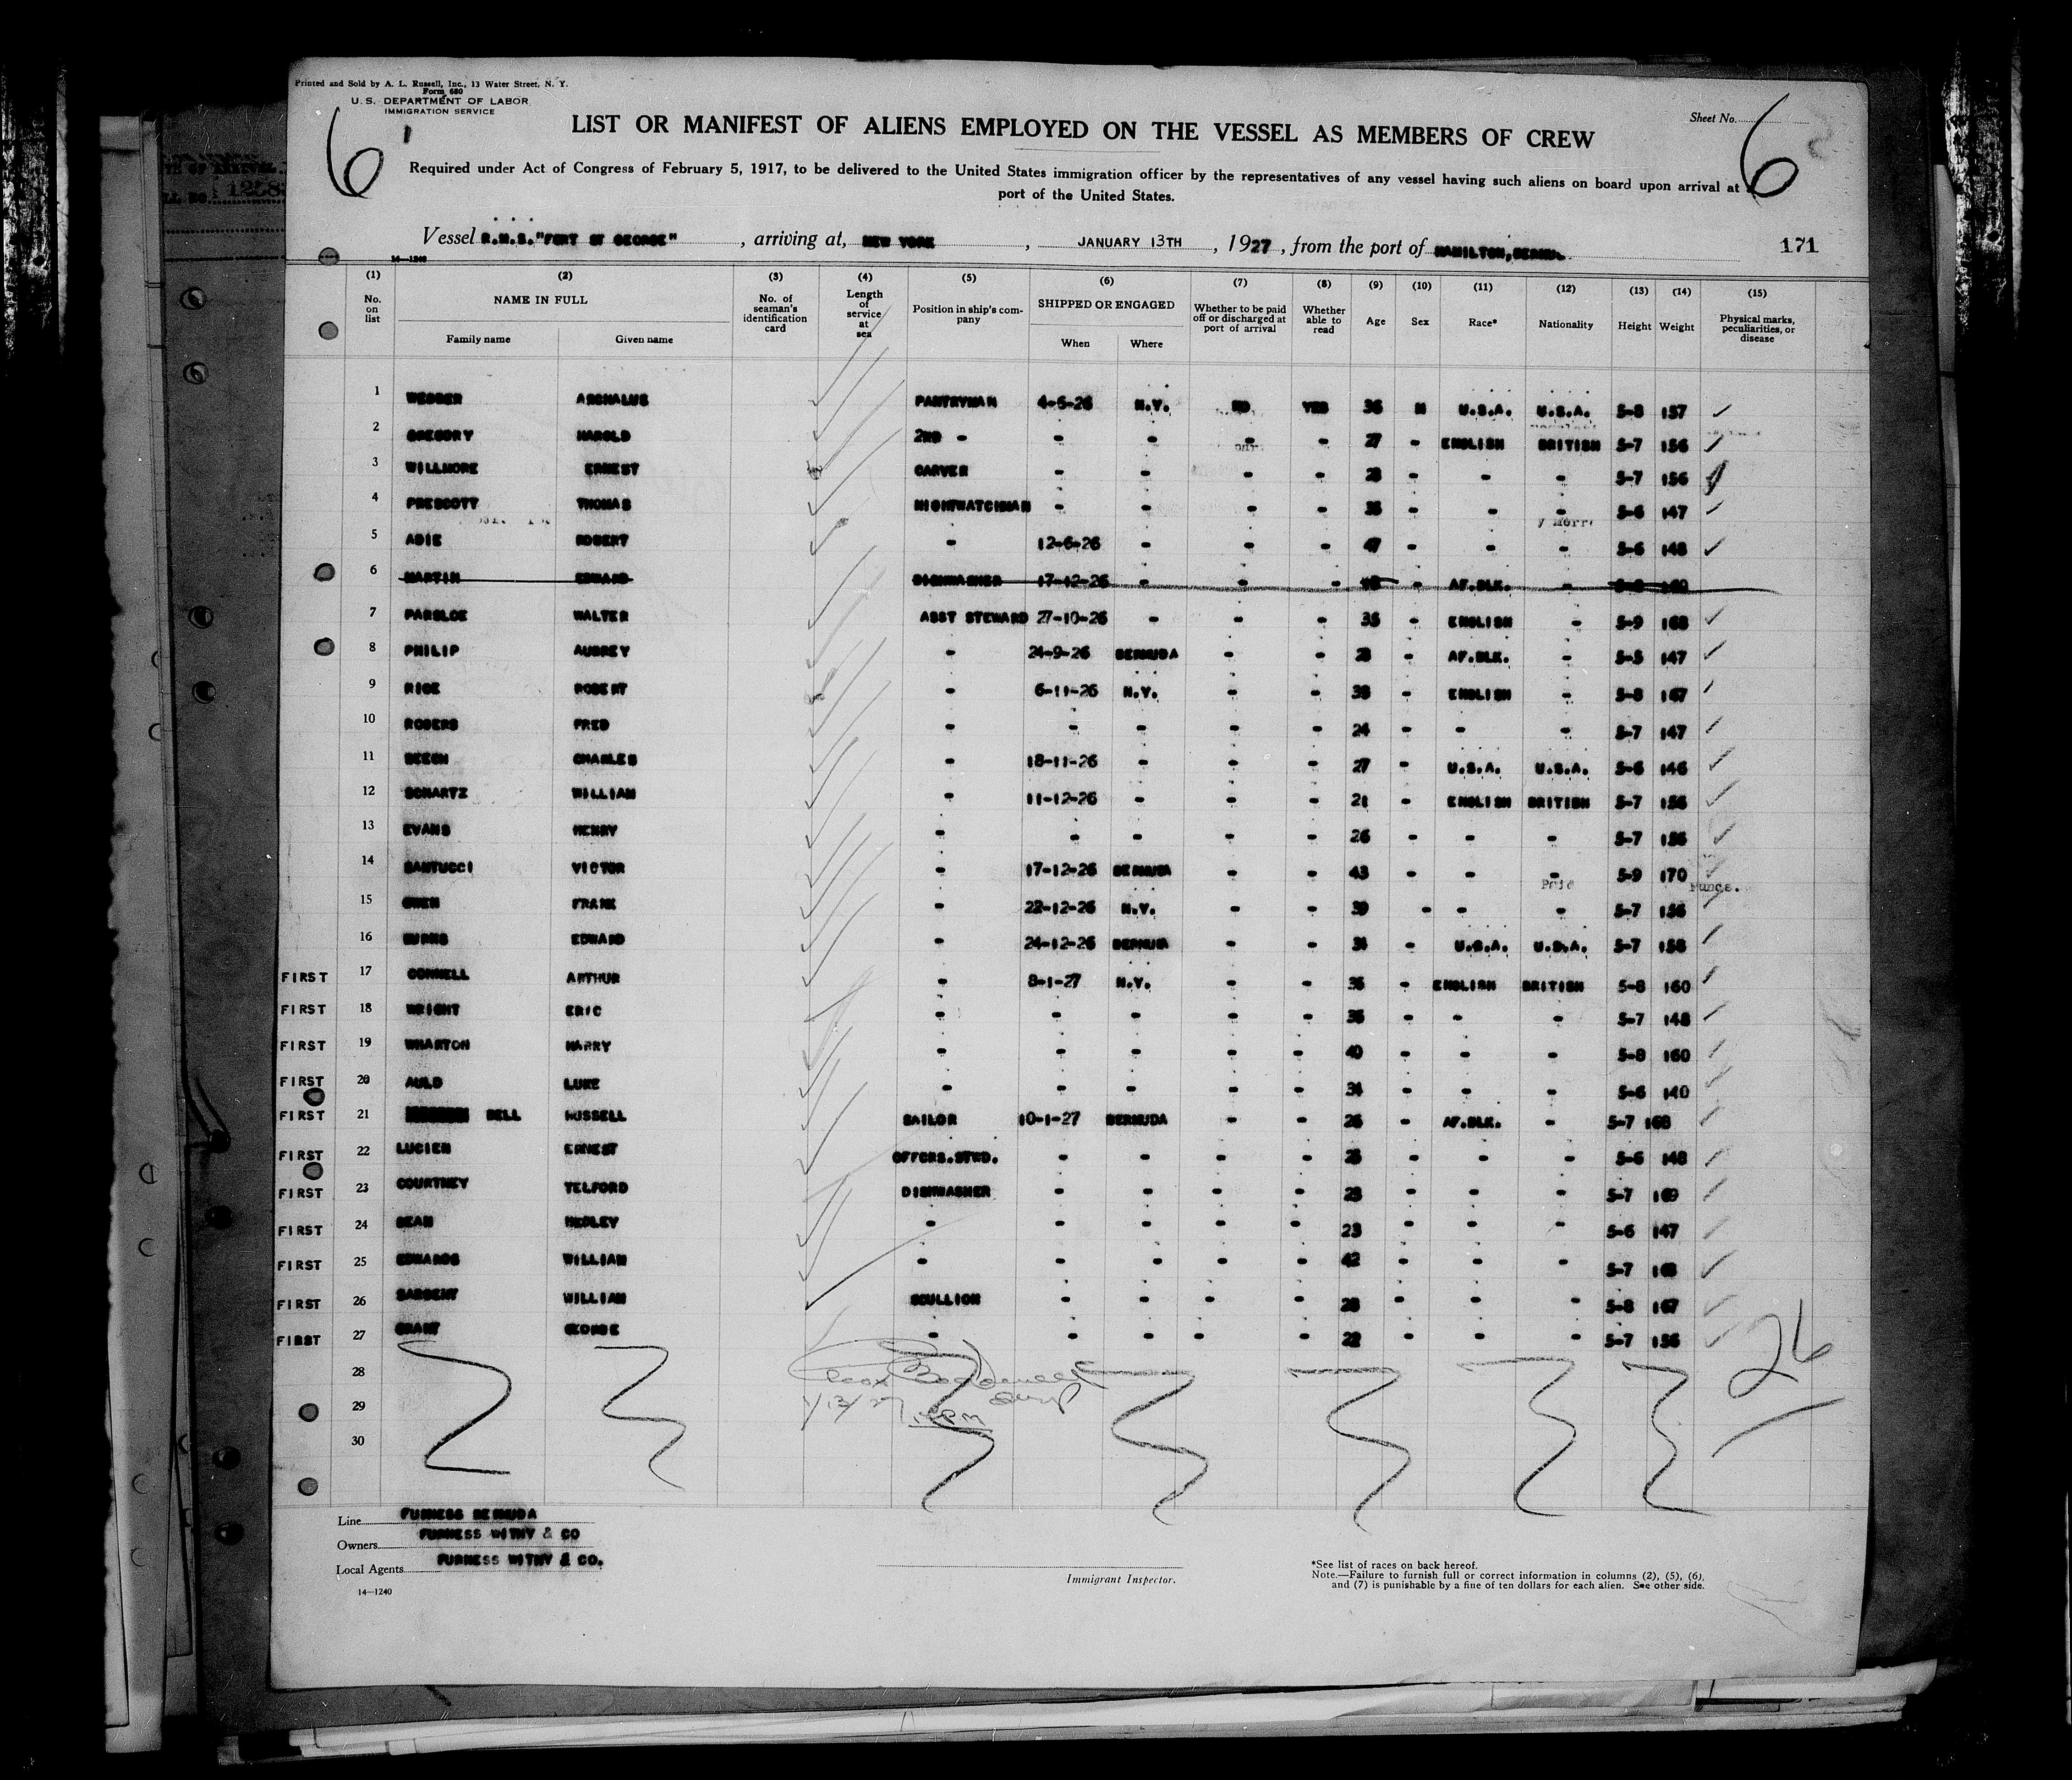 Printed and Sold by A. L. Russell, Inc., 13 Water Street, N. Y.
Form 680
U. S. DEPARTMENT OF LABOR
IMMIGRATION SERVICE
Sheet No.
6
6
LIST OR MANIFEST OF ALIENS EMPLOYED ON THE VESSEL AS MEMBERS OF CREW
Required under Act of Congress of February 5, 1917, to be delivered to the United States immigration officer by the representatives of any vessel having such aliens on board upon arrival at
port of the United States.
Vessel R.M.S. "FORT ST GEORGE", arriving at, NEW YORK, JANUARY 13TH, 1927, from the port of HAMILTON,
171
14—1240
(1) No. on list (2) NAME IN FULL Family name Given name (3) No. of seaman's identification card (4) Length of service at sea (5) Position in ship's company (6) SHIPPED OR ENGAGED When Where (7) Whether to be paid off or discharged at port of arrival (8) Whether able to read (9) Age (10) Sex (11) Race* (12) Nationality (13) Height (14) Weight (15) Physical marks, peculiarities, or disease
1 WEBBER PANTRYMAN 4-6-26 N.Y. NO YES 36 M U.S.A. U.S.A. 5-8 157
2 GREGORY HAROLD 2ND - - - - - 27 - ENGLISH BRITISH 5-7 156
3 WILLMORE ERNEST CARVER - - - - - - - 5-7 156
4 PRESCOTT THOMAS NIGHTWATCHMAN - - - - - - - 5-6 147
5 ADIE ROBERT - 12-6-26 - - - 47 - - - 5-6 148
6 MARTIN EDWARD DISHWASHER 17-12-26 - - - - AF.BLK. -
7 PARSLOE WALTER ASST STEWARD 27-10-26 - - - 35 - ENGLISH - 5-9 168
8 PHILIP AUBREY - 24-9-26 BERMUDA - - - AF.BLK. - 5-5 147
9 RICE ROBERT - 6-11-26 N.Y. - - 38 - ENGLISH - 5-8 167
10 ROGERS FRED - - - - - 24 - - - 5-7 147
11 BEECH CHARLES - 18-11-26 - - - 27 - U.S.A. U.S.A. 5-6 146
12 SCHARTZ WILLIAM - 11-12-26 - - - 21 - ENGLISH BRITISH 5-7 156
13 EVANS HENRY - - - - - 26 - - - 5-7 156
14 SANTUCCI VICTOR - 17-12-26 BERMUDA - - 43 - - - 5-9 170
15 OWEN FRANK - 22-12-26 N.Y. - - 39 - - - 5-7 156
16 BURNS EDWARD - 24-12-26 BERMUDA - - 34 - U.S.A. U.S.A. 5-7 158
FIRST 17 CONNELL ARTHUR - 8-1-27 N.Y. - - 36 - ENGLISH BRITISH 5-8 160
FIRST 18 WRIGHT ERIC - - - - - 36 - - - 5-7 148
FIRST 19 WHARTON HARRY - - - - - 40 - - - 5-8 160
FIRST 20 AULD LUKE - - - - - 34 - - - 5-6 140
FIRST 21 BELL RUSSELL SAILOR 10-1-27 BERMUDA - - 26 - AF.BLK. - 5-7 168
FIRST 22 LUCIEN ERNEST OFFCRS.STWD. - - - - - - - 5-6 148
FIRST 23 COURTNEY TELFORD DISHWASHER - - - - - - - 5-7 169
FIRST 24 DEAN HEDLEY - - - - - 23 - - - 5-6 147
FIRST 25 EDWARDS WILLIAM - - - - - 42 - - - 5-7
FIRST 26 SARGENT WILLIAM SCULLION - - - - 28 - - - 5-8 167
FIRST 27 GRANT GEORGE - - - - - 22 - - - 5-7 156
28
29
30
26
1/13/27
Line FURNESS BERMUDA
Owners FURNESS WITHY & CO
Local Agents FURNESS WITHY & CO.
14—1240
Immigrant Inspector.
*See list of races on back hereof.
Note.—Failure to furnish full or correct information in columns (2), (5), (6),
and (7) is punishable by a fine of ten dollars for each alien. See other side.